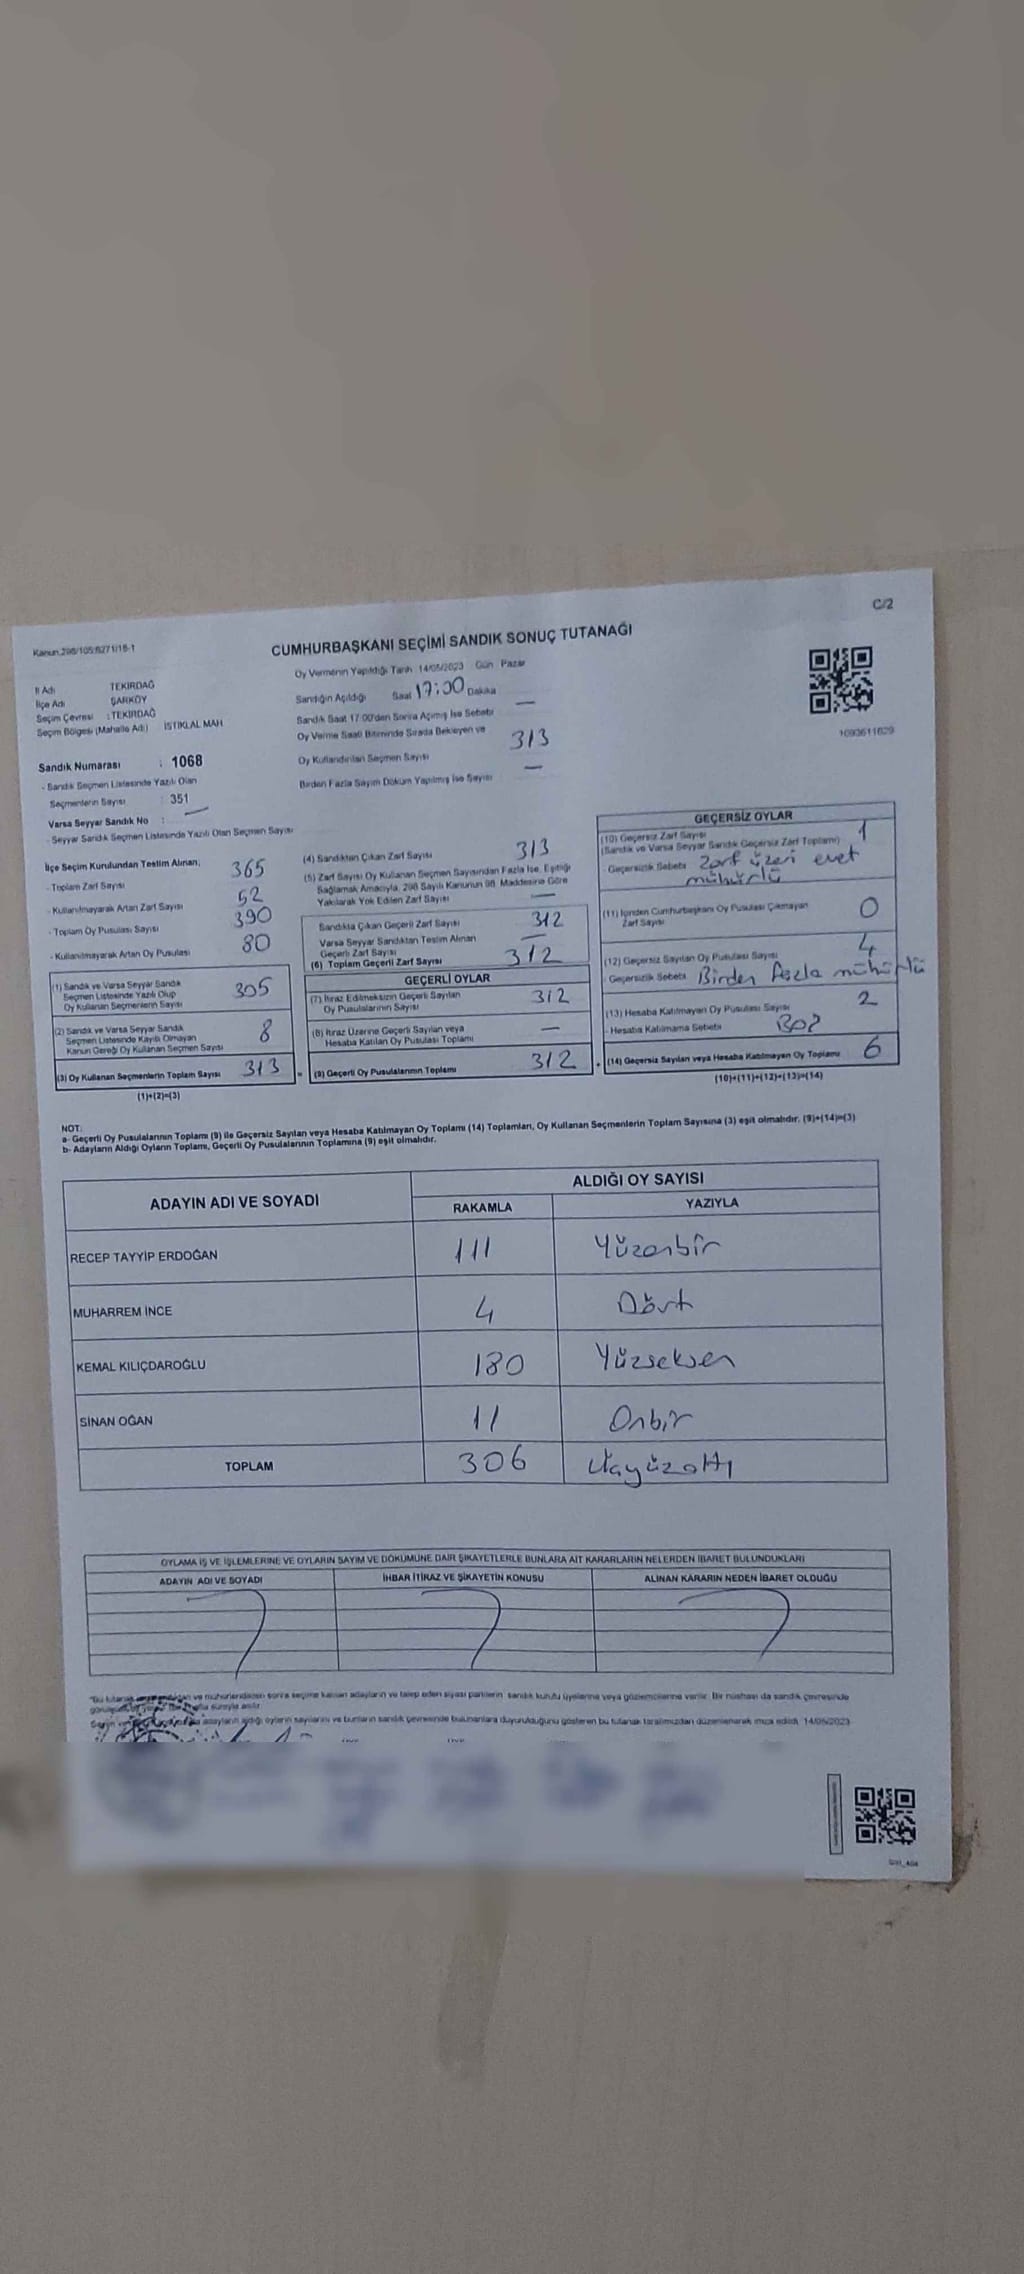 C/2
Kanun.298/105:6271/18-1
CUMHURBAŞKANI SEÇİMİ SANDIK SONUÇ TUTANAĞI
İl Adı TEKİRDAĞ
İlçe Adı ŞARKÖY
Seçim Çevresi : TEKİRDAĞ
Seçim Bölgesi (Mahalle Adı) İSTİKLAL MAH
Sandık Numarası : 1068
- Sandık Seçmen Listesinde Yazılı Olan
Seçmenlerin Sayısı : 351
Varsa Seyyar Sandık No : —
- Seyyar Sandık Seçmen Listesinde Yazılı Olan Seçmen Sayısı
Oy Vermenin Yapıldığı Tarih 14/05/2023 Gün Pazar
Sandığın Açıldığı Saat 17:00 Dakika
Sandık Saat 17:00'den Sonra Açılmış İse Sebebi —
Oy Verme Saati Bitiminde Sırada Bekleyen ve
Oy Kullandırılan Seçmen Sayısı 313
Birden Fazla Sayım Döküm Yapılmış İse Sayısı —
1093611629
İlçe Seçim Kurulundan Teslim Alınan;
- Toplam Zarf Sayısı 365
- Kullanılmayarak Artan Zarf Sayısı 52
- Toplam Oy Pusulası Sayısı 390
- Kullanılmayarak Artan Oy Pusulası 80
(1) Sandık ve Varsa Seyyar Sandık
Seçmen Listesinde Yazılı Olup
Oy Kullanan Seçmenlerin Sayısı 305
(2) Sandık ve Varsa Seyyar Sandık
Seçmen Listesinde Kayıtlı Olmayan
Kanun Gereği Oy Kullanan Seçmen Sayısı 8
(3) Oy Kullanan Seçmenlerin Toplam Sayısı 313
(1)+(2)=(3)
(4) Sandıktan Çıkan Zarf Sayısı 313
(5) Zarf Sayısı Oy Kullanan Seçmen Sayısından Fazla İse, Eşitliği
Sağlamak Amacıyla, 298 Sayılı Kanunun 98. Maddesine Göre
Yakılarak Yok Edilen Zarf Sayısı —
Sandıkta Çıkan Geçerli Zarf Sayısı 312
Varsa Seyyar Sandıktan Teslim Alınan
Geçerli Zarf Sayısı —
(6) Toplam Geçerli Zarf Sayısı 312
GEÇERLİ OYLAR
(7) İtiraz Edilmeksizin Geçerli Sayılan
Oy Pusulalarının Sayısı 312
(8) İtiraz Üzerine Geçerli Sayılan veya
Hesaba Katılan Oy Pusulası Toplamı —
= (9) Geçerli Oy Pusulalarının Toplamı 312
GEÇERSİZ OYLAR
(10) Geçersiz Zarf Sayısı 1
(Sandık ve Varsa Seyyar Sandık Geçersiz Zarf Toplamı)
- Geçersizlik Sebebi Zarf üzeri evet
mühürlü
(11) İçinden Cumhurbaşkanı Oy Pusulası Çıkmayan
Zarf Sayısı 0
(12) Geçersiz Sayılan Oy Pusulası Sayısı 4
- Geçersizlik Sebebi Birden Fazla mühürlü
(13) Hesaba Katılmayan Oy Pusulası Sayısı 2
- Hesaba Katılmama Sebebi Boş
+ (14) Geçersiz Sayılan veya Hesaba Katılmayan Oy Toplamı 6
(10)+(11)+(12)+(13)=(14)
NOT:
a- Geçerli Oy Pusulalarının Toplamı (9) ile Geçersiz Sayılan veya Hesaba Katılmayan Oy Toplamı (14) Toplamları, Oy Kullanan Seçmenlerin Toplam Sayısına (3) eşit olmalıdır. (9)+(14)=(3)
b- Adayların Aldığı Oyların Toplamı, Geçerli Oy Pusulalarının Toplamına (9) eşit olmalıdır.
ADAYIN ADI VE SOYADI ALDIĞI OY SAYISI
RAKAMLA YAZIYLA
RECEP TAYYİP ERDOĞAN 111 Yüzonbir
MUHARREM İNCE 4 Dört
KEMAL KILIÇDAROĞLU 180 Yüzseksen
SİNAN OĞAN 11 Onbir
TOPLAM 306 Üçyüzaltı
OYLAMA İŞ VE İŞLEMLERİNE VE OYLARIN SAYIM VE DÖKÜMÜNE DAİR ŞİKAYETLERLE BUNLARA AİT KARARLARIN NELERDEN İBARET BULUNDUKLARI
ADAYIN ADI VE SOYADI İHBAR İTİRAZ VE ŞİKAYETİN KONUSU ALINAN KARARIN NEDEN İBARET OLDUĞU
"Bu tutanak ve mühürlendikten sonra seçime katılan adayların ve talep eden siyasi partilerin sandık kurulu üyelerine veya gözlemcilerine verilir. Bir nüshası da sandık çevresinde
adayların aldığı oyların sayılarını ve bunların sandık çevresinde bulunanlara duyurulduğunu gösteren bu tutanak tarafımızdan düzenlenerek imza edildi. 14/05/2023